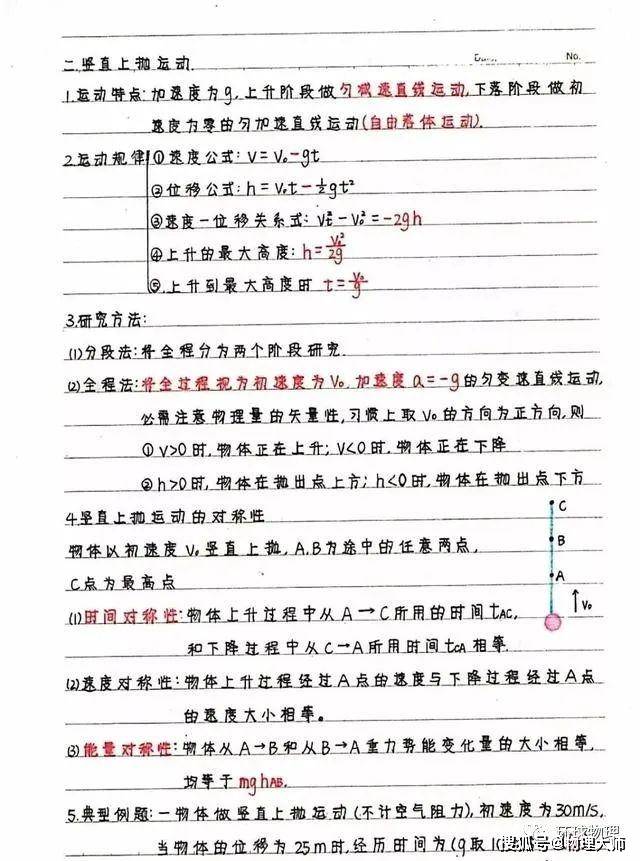 二.竖直上抛运动.
No.
1.运动特点:加速度为g,上升阶段做匀减速直线运动,下落阶段做初
速度为零的匀加速直线运动(自由落体运动).
2.运动规律 ①速度公式: v=v₀-gt
②位移公式: h=v₀t-½gt²
③速度一位移关系式: vt²-v₀²=-2gh
④上升的最大高度: h=v₀²/2g
⑤.上升到最大高度时 t=v₀/g
3.研究方法:
(1)分段法:将全程分为两个阶段研究.
(2)全程法:将全过程视为初速度为v₀,加速度a=-g的匀变速直线运动,
必需注意物理量的矢量性,习惯上取v₀的方向为正方向,则
①v>0时,物体正在上升;v<0时,物体正在下降
②h>0时,物体在抛出点上方;h<0时,物体在抛出点下方
4.竖直上抛运动的对称性
物体以初速度v₀竖直上抛,A,B为途中的任意两点,
C点为最高点
C
B
A
v₀
(1)时间对称性:物体上升过程中从A→C所用的时间tAC,
和下降过程中从C→A所用时间tCA相等.
(2)速度对称性:物体上升过程经过A点的速度与下降过程经过A点
的速度大小相等。
(3)能量对称性:物体从A→B和从B→A重力势能变化量的大小相等,
均等于mghAB.
5.典型例题:一物体做竖直上抛运动(不计空气阻力),初速度为30m/s,
当物体的位移为25m时,经历时间为(g取10
环球物理
搜狐号@物理大师